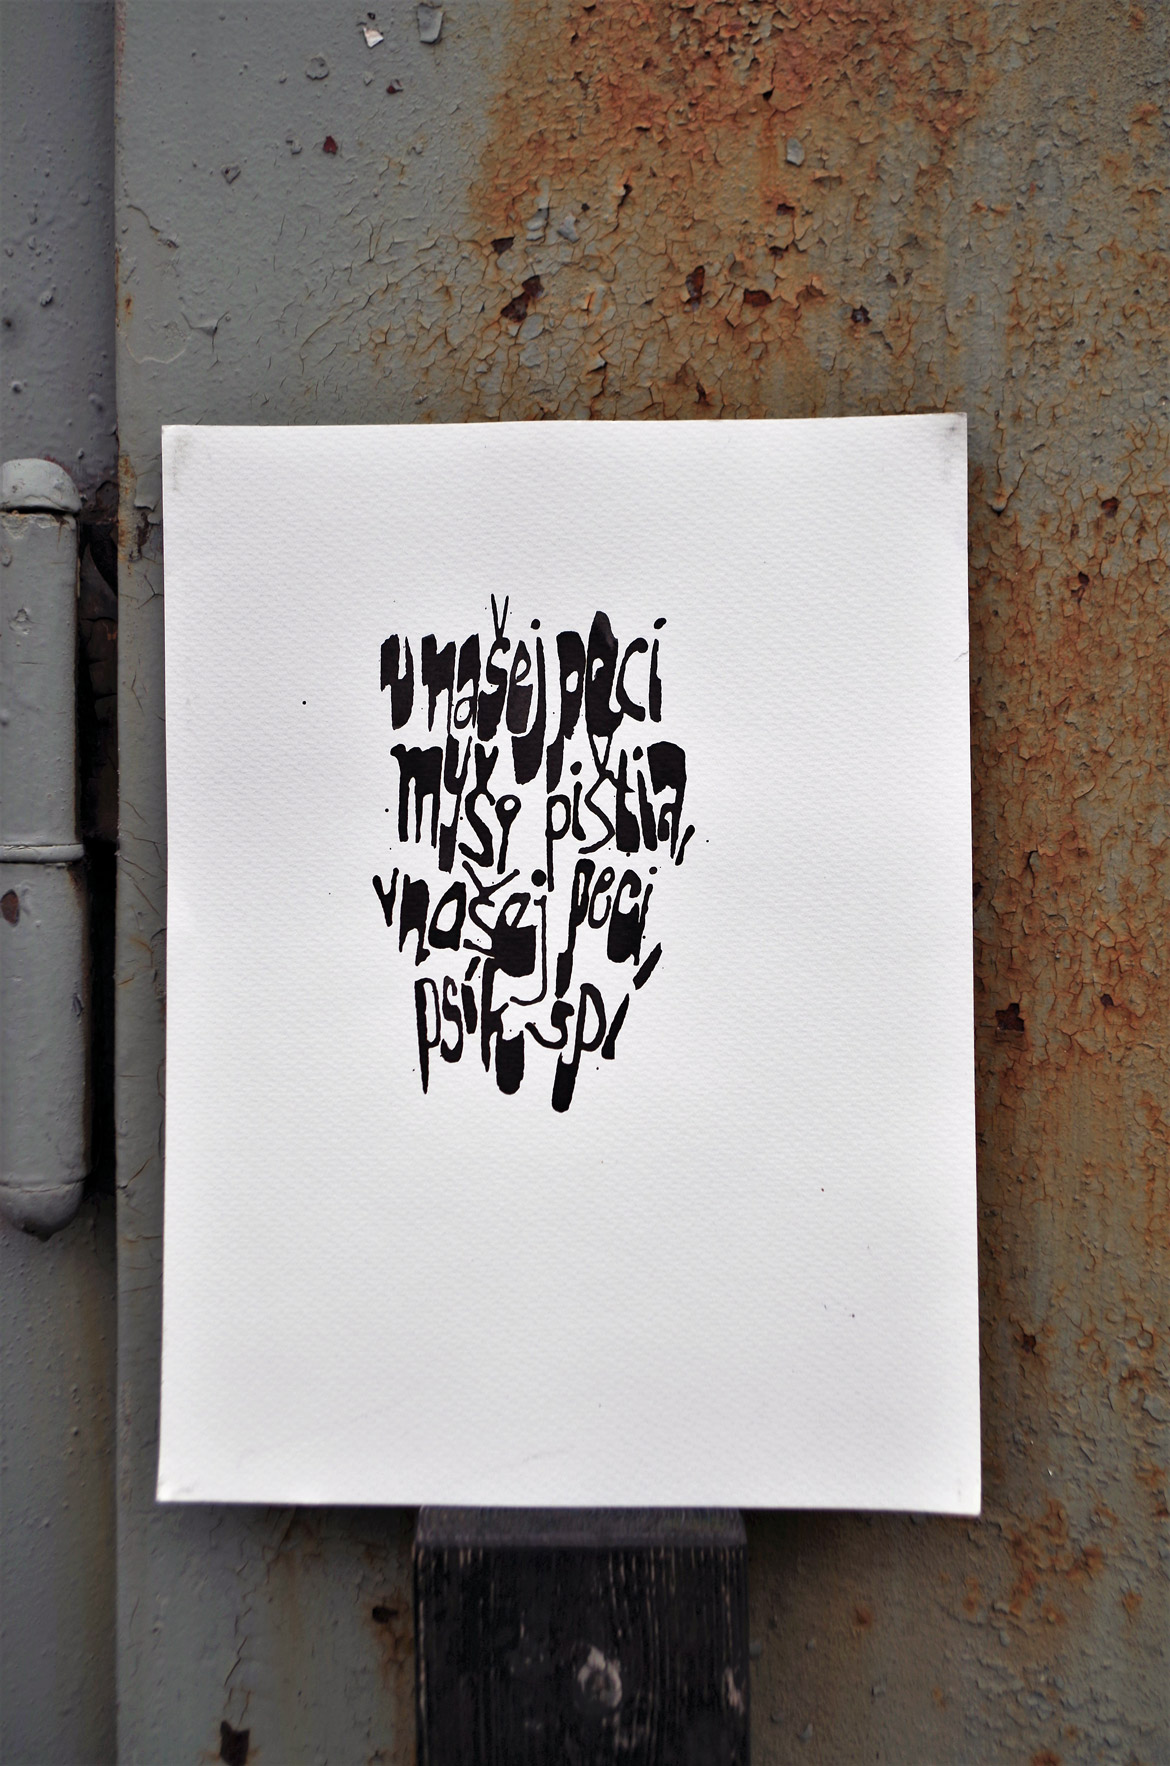 v našej peci
myši pištia,
v našej peci,
psík spí